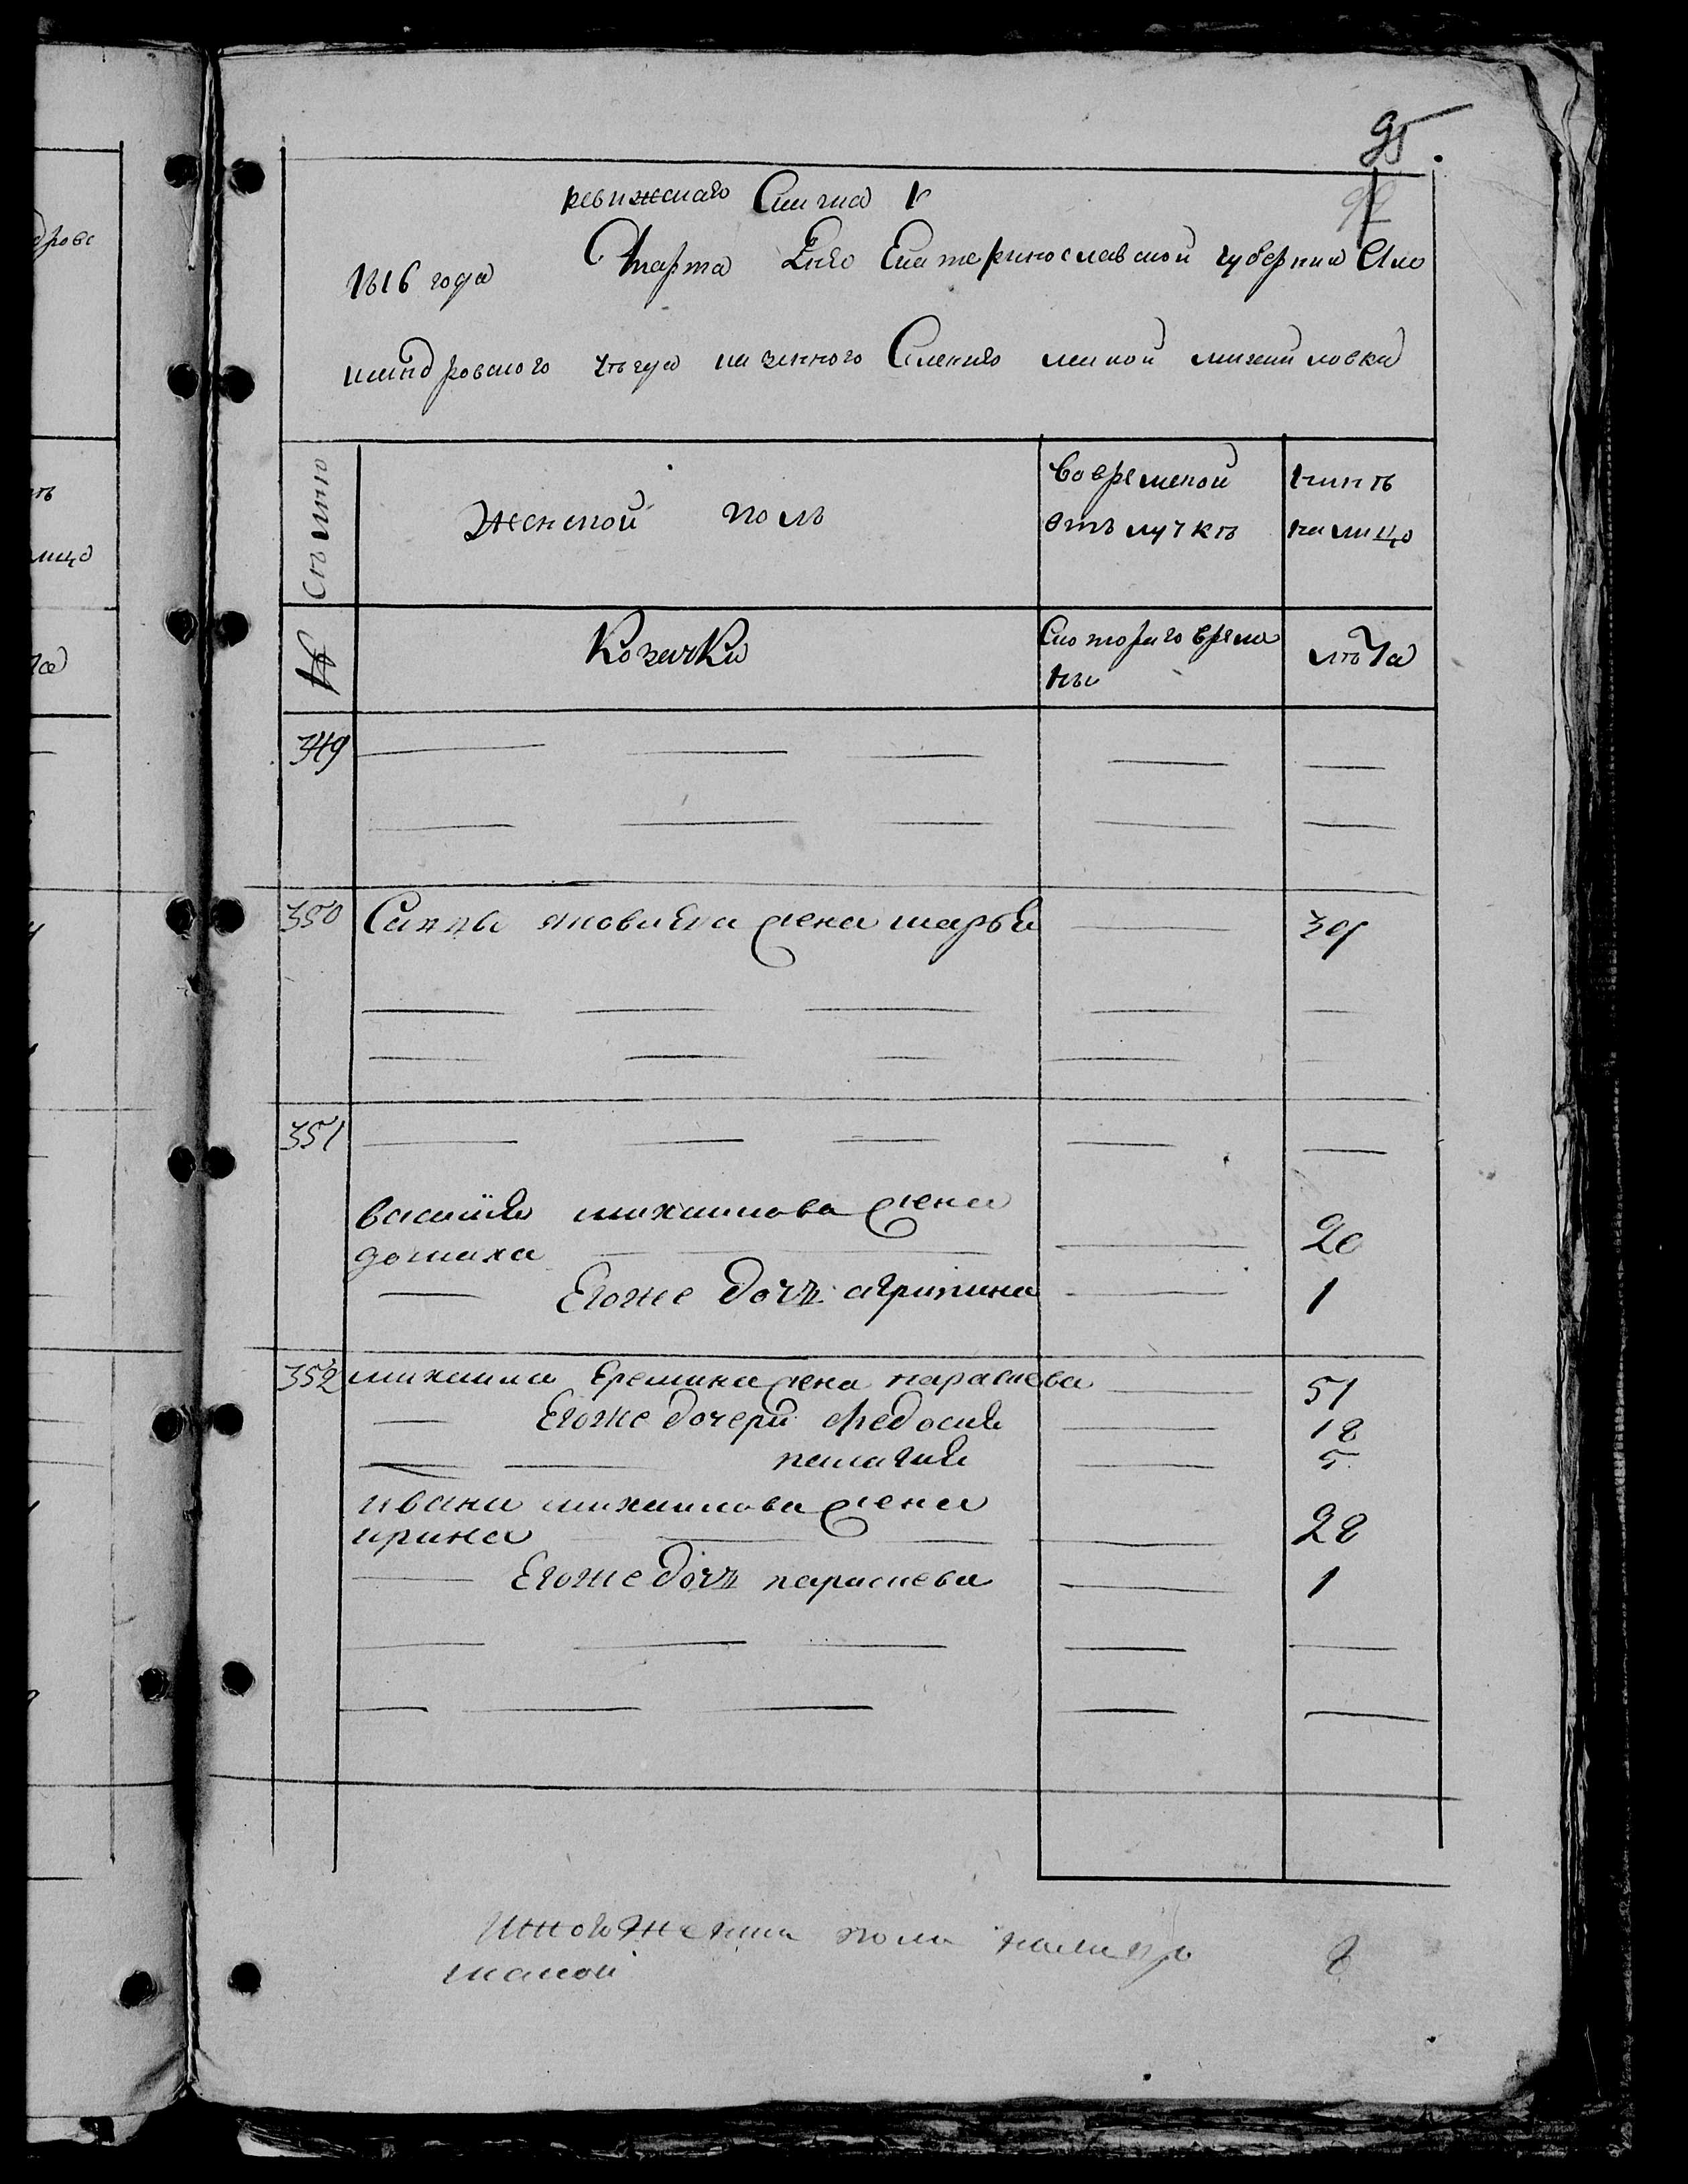 95
ревижскаго Списка
1816 года Марта дня Екатеринославской губернии Але
ксандровского уезда казенного Селения михайловка
Женской поль
вовременой
отълучкъ
нынъ
налицо
№
Козачки
Скотораго време
ны
лъта
349
350 Савы яковлева жена марья 39
351
василия михаилова жена
домаха 20
Егоже дочъ агрипина 1
352 михаила Еремина жена параскева 51
Егоже дочери федосия 18
пелагия 5
ивана михаилова жена
ирина 28
Егоже дочъ параскева 1
Итого женска пола налицо 8